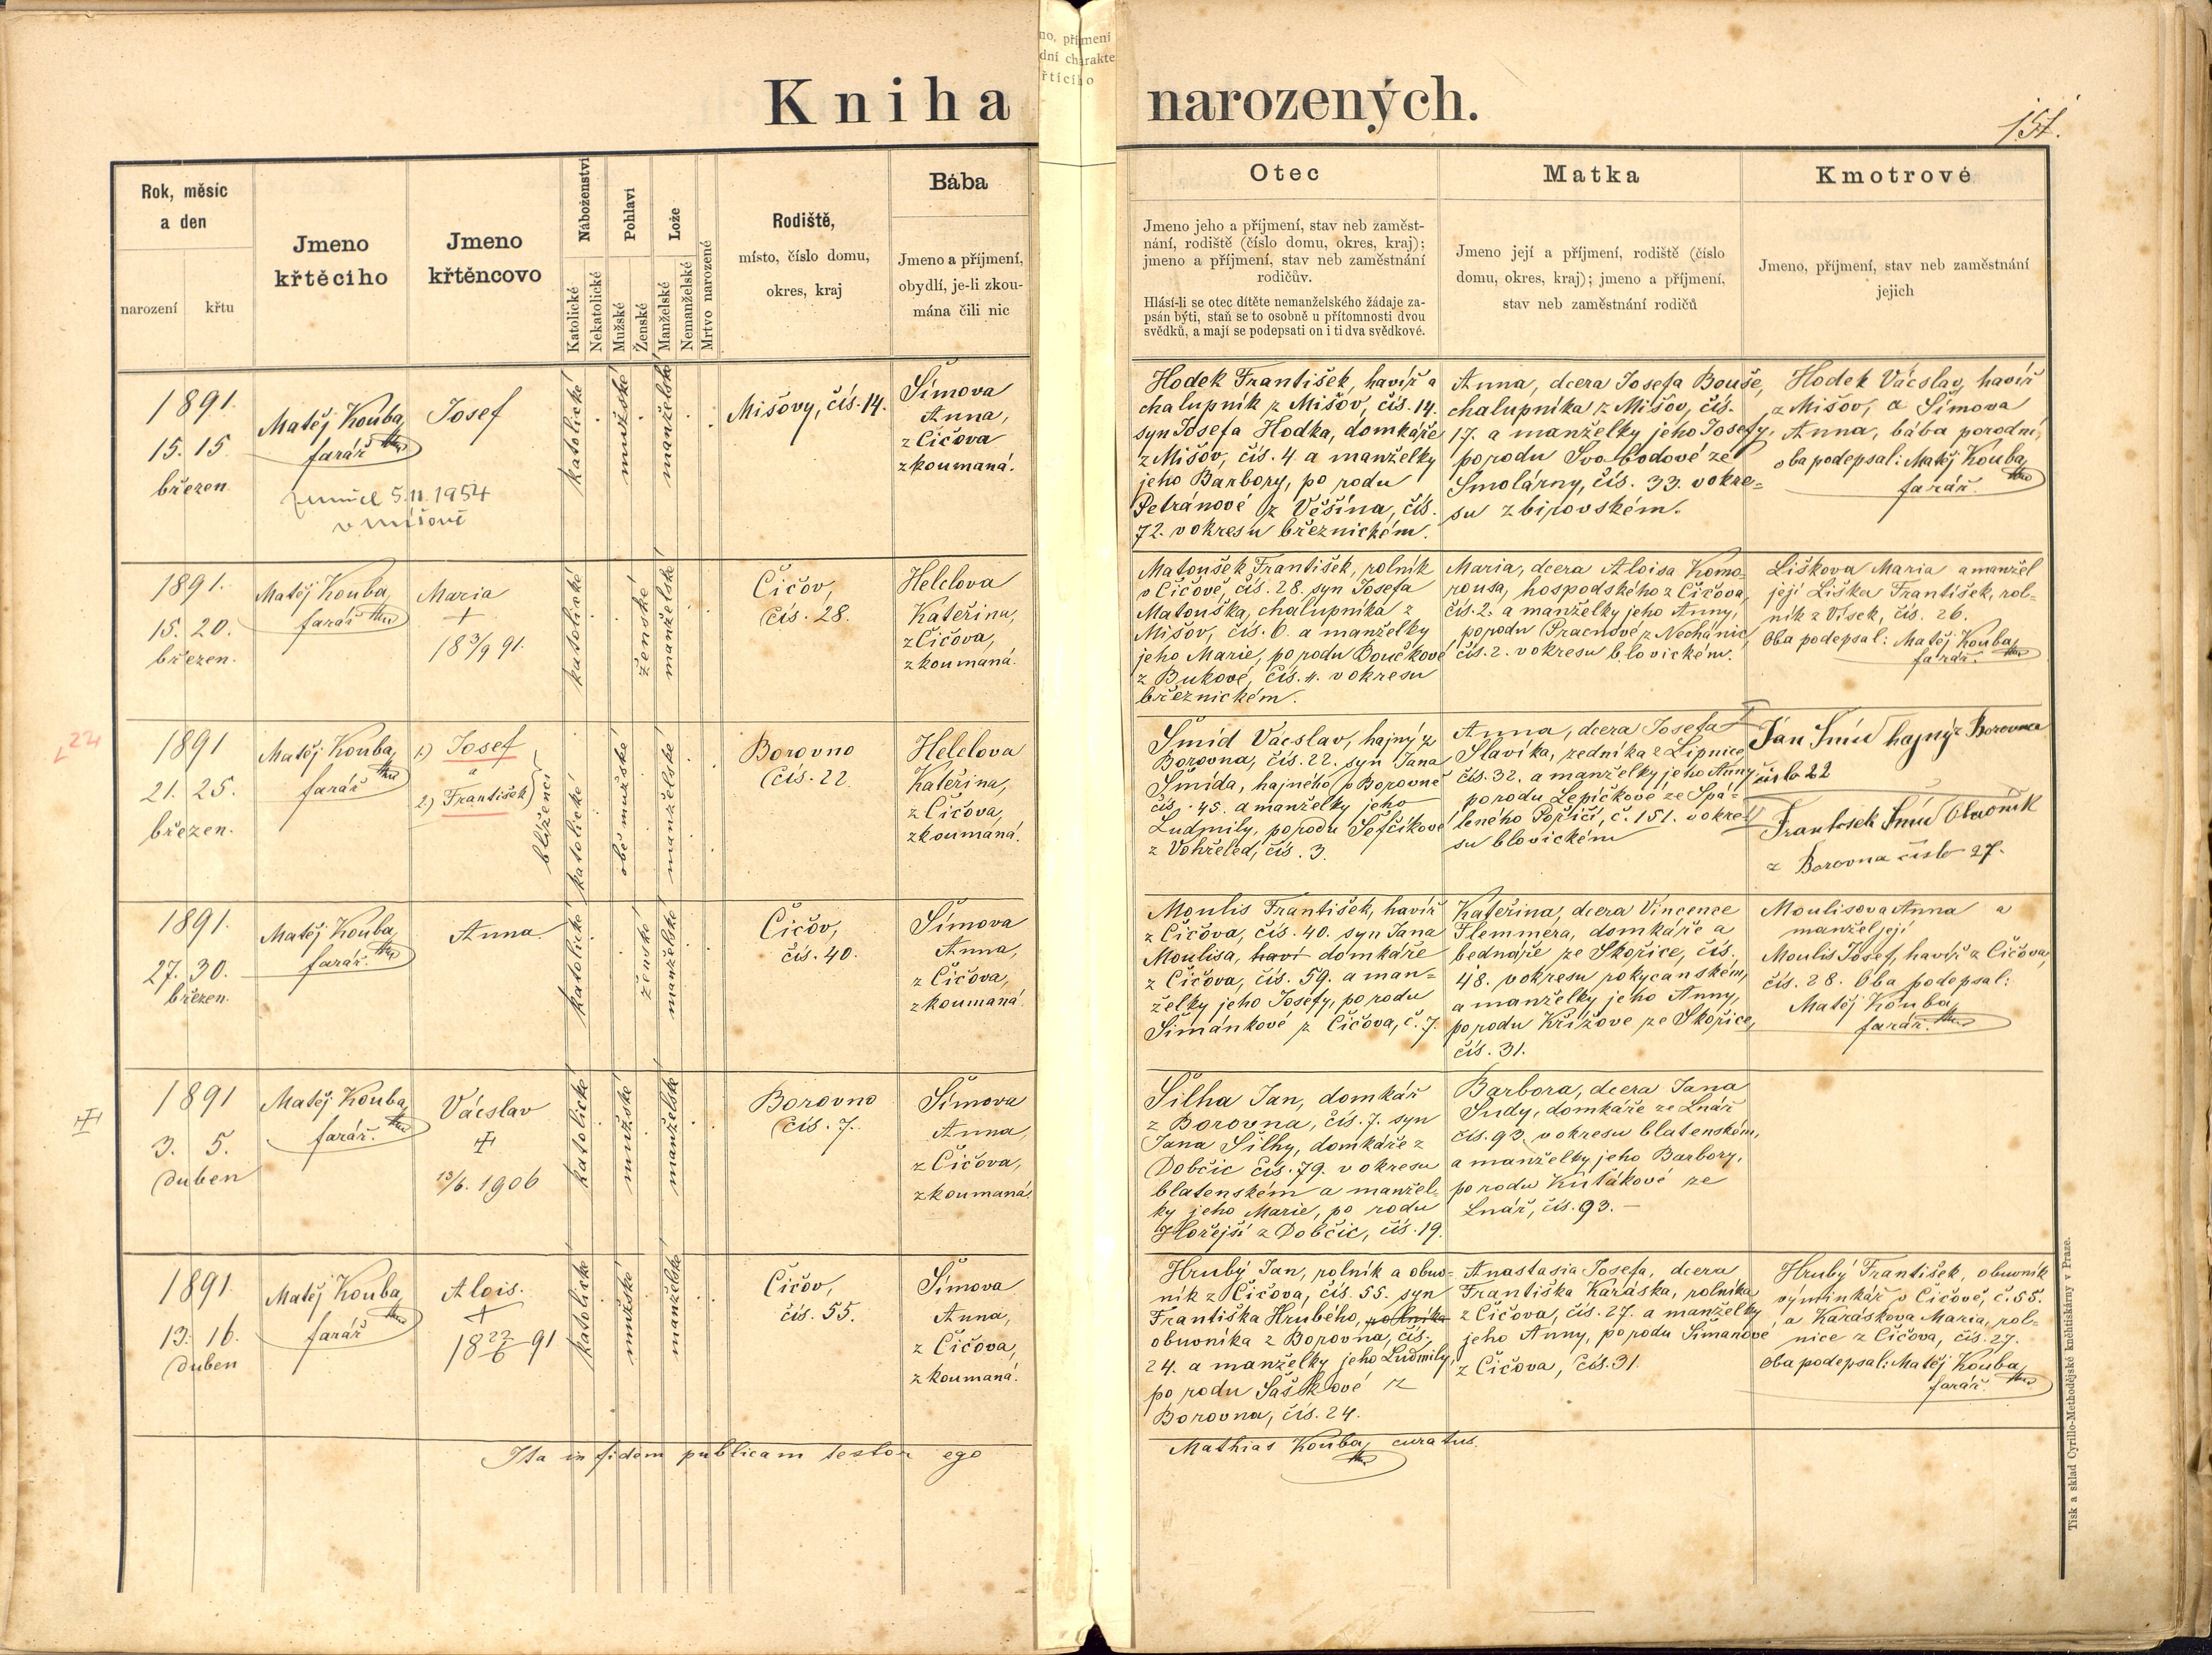 no, příjmení
dní charakte
řtícího
Kniha narozených.
151.
Rok, měsíc
a den
narození
křtu
Jmeno
křtěcího
Jmeno
křtěncovo
Náboženství
Katolické
Nekatolické
Pohlaví
Mužské
Ženské
Lože
Manželské
Nemanželské
Mrtvo narozené
Rodiště,
místo, číslo domu,
okres, kraj
Bába
Jmeno a příjmení,
obydlí, je-li zkou-
mána čili nic
Otec
Jmeno jeho a příjmení, stav neb zaměst-
nání, rodiště (číslo domu, okres, kraj);
jmeno a příjmení, stav neb zaměstnání
rodičův.
Hlásí-li se otec dítěte nemanželského žádaje za-
psán býti, staň se to osobně u přítomnosti dvou
svědků, a mají se podepsati on i ti dva svědkové.
Matka
Jmeno její a příjmení, rodiště (číslo
domu, okres, kraj); jmeno a příjmení,
stav neb zaměstnání rodičů
Kmotrové
Jmeno, příjmení, stav neb zaměstnání
jejich
1891.
15. 15.
březen.
Matěj Kouba,
farář
zemřel 5.11.1954
v Míšově
Josef
katolické
mužské
manželské
Mišovy, čís. 14.
Šímova
Anna,
z Čičova
zkoumaná.
Hodek František, havíř a
chalupník z Mišov, čís. 14.
syn Josefa Hodka, domkáře
z Mišov, čís. 4 a manželky
jeho Barbory, po rodu
Petránové z Věšína, čís.
72. v okresu březnickém.
Anna, dcera Josefa Bouše,
chalupníka z Mišov, čís.
17. a manželky jeho Josefy,
po rodu Svobodové ze
Smolárny, čís. 33. v okre=
su zbirovském.
Hodek Václav, havíř
z Mišov, a Šímova
Anna, bába porodní,
oba podepsal: Matěj Kouba,
farář.
1891.
15. 20.
březen.
Matěj Kouba,
farář
Maria
+
18 3/9 91.
katolické
ženské
manželské
Čičov,
čís. 28.
Helclova
Kateřina,
z Čičova,
zkoumaná.
Matoušek František, rolník
v Čičově, čís. 28. syn Josefa
Matouška, chalupníka z
Mišov, čís. 6. a manželky
jeho Marie, po rodu Boučkové
z Bukové, čís. 4. v okresu
březnickém.
Maria, dcera Aloisa Komo-
rousa, hospodského z Čičova,
čís. 2. a manželky jeho Anny,
po rodu Pracnové z Nechánic,
čís. 2. v okresu blovickém.
Liškova Maria a manžel
její Liška František, rol-
ník z Vísek, čís. 26.
Oba podepsal: Matěj Kouba,
farář.
22
1891
21. 25.
březen.
Matěj Kouba,
farář
1) Josef
a
2) František
blíženci
katolické
obě mužské
manželské
Borovno
čís. 22
Helclova
Kateřina,
z Čičova,
zkoumaná.
Šmíd Václav, hajný z
Borovna, čís. 22. syn Jana
Šmída, hajného v Borovně
čís. 45. a manželky jeho
Ludmily, po rodu Šefčíkové
z Vohřeled, čís. 3.
Anna, dcera Josefa
Slavíka, zedníka z Lipnice
čís. 32. a manželky jeho Anny
po rodu Lepičkové ze Spá-
leného Poříčí, č. 151. v okre-
su blovickém
Jan Šmíd hajný z Borovna
číslo 22
Frantisek Šmíd Obuvník
z Borovna číslo 27.
1891.
27. 30.
březen.
Matěj Kouba,
farář.
Anna.
katolické
ženské
manželské
Čičov,
čís. 40.
Šímova
Anna,
z Čičova,
zkoumaná.
Moulis František, havíř
z Čičova, čís. 40. syn Jana
Moulisa, haví domkáře
z Čičova, čís. 59. a man=
želky jeho Josefy, po rodu
Šimánkové z Čičova, č. 7.
Kateřina, dcera Vincence
Flemmera, domkáře a
bednáře ze Skořice, čís.
48. v okresu rokycanském,
a manželky jeho Anny,
po rodu Křížove ze Skořice,
čís. 31.
Moulisova Anna a
manžel její
Moulis Josef, havíř z Čičova,
čís. 28. Oba podepsal:
Matěj Kouba,
farář.
1891
3. 5.
duben
Matěj Kouba,
farář.
Václav
13/6. 1906
katolické
mužské
manželské
Borovno
čís. 7.
Šímova
Anna,
z Čičova,
zkoumaná.
Šilha Jan, domkář
z Borovna, čís. 7. syn
Jana Šilhy, domkáře z
Dobčic čís. 79. v okresu
blatenském a manžel-
ky jeho Marie, po rodu
Hořejší z Dobčic, čís. 19.
Barbora, dcera Jana
Sudy, domkáře ze Lnář
čís. 93. v okresu blatenském,
a manželky jeho Barbory,
po rodu Kuťákové ze
Lnář, čís. 93.-
1891.
13. 16.
duben
Matěj Kouba,
farář
Alois.
+
18 22/6 91
katolické
mužské
manželské
Čičov,
čís. 55.
Šímova
Anna,
z Čičova,
zkoumaná.
Hrubý Jan, rolník a obuv=
ník z Čičova, čís. 55. syn
Františka Hrubého, rolníka
obuvníka z Borovna, čís.
24. a manželky jeho Ludmily,
po rodu Šaškové z
Borovna, čís. 24.
Anastasia Josefa, dcera
Františka Karáska, rolníka
z Čičova, čís. 27. a manželky
jeho Anny, po rodu Šimanové
z Čičova, čís. 31.
Hrubý František, obuvník
výminkář v Čičově, č. 55.
a Karáskova Maria, rol-
nice z Čičova, čís. 27.
Oba podepsal: Matěj Kouba,
farář.
Ita in fidem publicam testor ego
Mathias Kouba, curatus.
Tisk a sklad Cyrillo-Methodějské knihtiskárny v Praze.